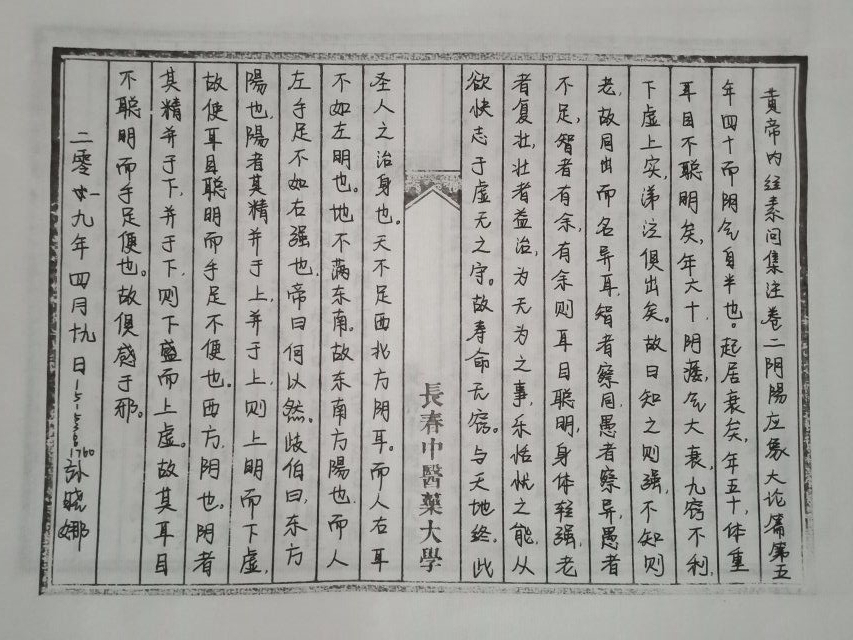 黄帝内经素问集注卷二阴陽应象大论篇第五
年四十而阴气自半也。起居衰矣,年五十,体重
耳目不聪明矣,年六十,阴痿,气大衰,九窍不利,
下虚上实,涕泣俱出矣。故曰知之则强,不知则
老,故同出而名异耳,智者察同,愚者察异,愚者
不足,智者有余,有余则耳目聪明,身体轻强,老
者复壮,壮者益治,为无为之事,乐恬忧之能,从
欲快志于虚无之守。故寿命无窃。与天地终。此
長春中醫藥大學
圣人之治身也。天不足西北方阴耳。而人右耳
不如左明也。地不满东南。故东南方陽也,而人
左手足不如右强也,帝曰何以然。歧伯曰,东方
陽也,陽者其精并于上,并于上,则上明而下虚,
故使耳目聪明而手足不便也。西方,阴也。阴者
其精并于下,并于下,则下盛而上虚。故其耳目
不聪明而手足便也。故俱感于邪。
二零廿一九年四月十九日
孙晓娜